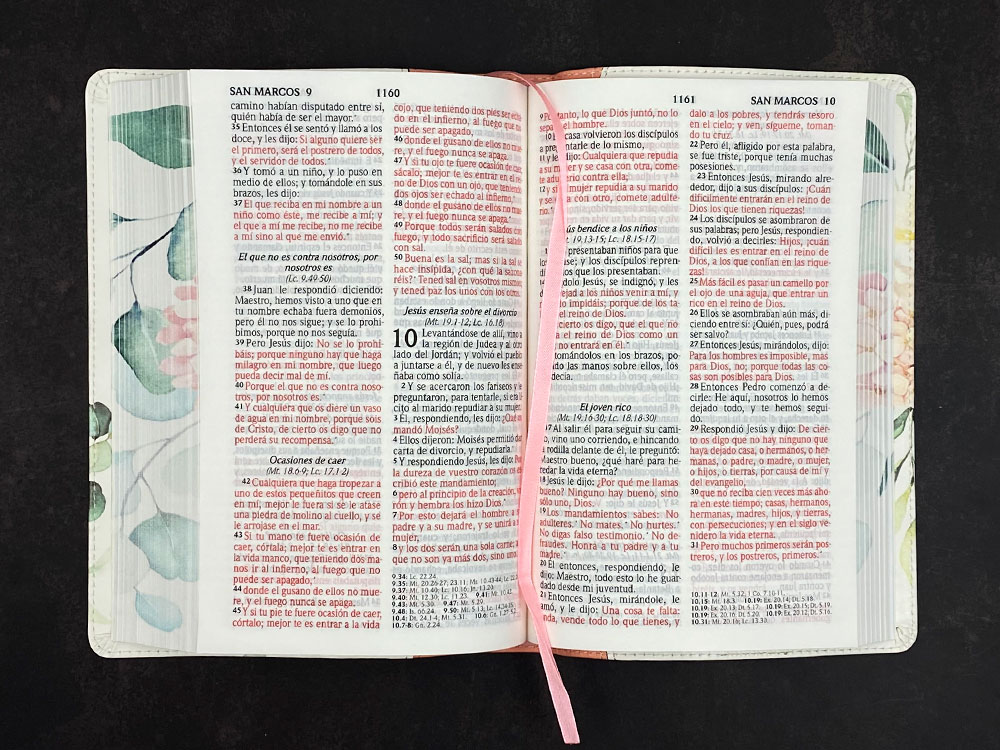 SAN MARCOS 9
1160
camino habían disputado entre sí,
quién había de ser el mayor.
35 Entonces él se sentó y llamó a los
doce, y les dijo: Si alguno quiere ser
el primero, será el postrero de todos,
y el servidor de todos.
36 Y tomó a un niño, y lo puso en
medio de ellos; y tomándole en sus
brazos, les dijo:
37 El que reciba en mi nombre a un
niño como éste, me recibe a mí; y
el que a mí me recibe, no me recibe
a mí sino al que me envió.
El que no es contra nosotros, por
nosotros es
(Lc. 9.49-50)
38 Juan le respondió diciendo:
Maestro, hemos visto a uno que en
tu nombre echaba fuera demonios,
pero él no nos sigue; y se lo prohi-
bimos, porque no nos seguía.
39 Pero Jesús dijo: No se lo prohi-
báis; porque ninguno hay que haga
milagro en mi nombre, que luego
pueda decir mal de mí.
40 Porque el que no es contra noso-
tros, por nosotros es.
41 Y cualquiera que os diere un vaso
de agua en mi nombre, porque sois
de Cristo, de cierto os digo que no
perderá su recompensa.
Ocasiones de caer
(Mt. 18.6-9; Lc. 17.1-2)
42 Cualquiera que haga tropezar a
uno de estos pequeñitos que creen
en mí, mejor le fuera si se le atase
una piedra de molino al cuello, y se
le arrojase en el mar.
43 Si tu mano te fuere ocasión de
caer, córtala; mejor te es entrar en
la vida manco, que teniendo dos ma-
nos ir al infierno, al fuego que no
puede ser apagado,
44 donde el gusano de ellos no mue-
re, y el fuego nunca se apaga.
45 Y si tu pie te fuere ocasión de caer,
córtalo; mejor te es entrar a la vida
cojo, que teniendo dos pies ser echa-
do en el infierno, al fuego que no
puede ser apagado,
46 donde el gusano de ellos no mue-
re, y el fuego nunca se apaga.
47 Y si tu ojo te fuere ocasión de caer,
sácalo; mejor te es entrar en el rei-
no de Dios con un ojo, que teniendo
dos ojos ser echado al infierno,
48 donde el gusano de ellos no mue-
re, y el fuego nunca se apaga.
49 Porque todos serán salados con
fuego, y todo sacrificio será salado
con sal.
50 Buena es la sal; mas si la sal se
hace insípida, ¿con qué la sazona-
réis? Tened sal en vosotros mismos;
y tened paz los unos con los otros.
Jesús enseña sobre el divorcio
(Mt. 19.1-12; Lc. 16.18)
10 Levantándose de allí, vino a
la región de Judea y al otro
lado del Jordán; y volvió el pueblo
a juntarse a él, y de nuevo les ense-
ñaba como solía.
2 Y se acercaron los fariseos y le
preguntaron, para tentarle, si era lí-
cito al marido repudiar a su mujer.
3 Él, respondiendo, les dijo: ¿Qué os
mandó Moisés?
4 Ellos dijeron: Moisés permitió dar
carta de divorcio, y repudiarla.
5 Y respondiendo Jesús, les dijo: Por
la dureza de vuestro corazón os es-
cribió este mandamiento;
6 pero al principio de la creación, va-
rón y hembra los hizo Dios.
7 Por esto dejará el hombre a su
padre y a su madre, y se unirá a su
mujer,
8 y los dos serán una sola carne; así
que no son ya más dos, sino uno.
9.34: Lc. 22.24.
1161
SAN MARCOS 10
9 tanto, lo que Dios juntó, no lo
sepa el hombre.
10 casa volvieron los discípulos
a guntarle de lo mismo,
11 y les dijo: Cualquiera que repudia
a su mujer y se casa con otra, come-
te adulterio contra ella;
12 y si mujer repudia a su marido
y a con otro, comete adulte-
rio.
ús bendice a los niños
(Mt. 19.13-15; Lc. 18.15-17)
presentaban niños para que
ase; y los discípulos repren-
os que los presentaban.
dolo Jesús, se indignó, y les
ejad a los niños venir a mí, y
o impidáis; porque de los ta-
el reino de Dios.
cierto os digo, que el que no
a el reino de Dios como un
no entrará en él.
tomándolos en los brazos, po-
do las manos sobre ellos, los
decía.
El joven rico
(Mt. 19.16-30; Lc. 18.18-30)
17 Al salir él para seguir su cami-
o, vino uno corriendo, e hincando
a rodilla delante de él, le preguntó:
Maestro bueno, ¿qué haré para he-
redar la vida eterna?
18 Jesús le dijo: ¿Por qué me llamas
bueno? Ninguno hay bueno, sino
sólo uno, Dios.
19 Los mandamientos sabes: No
adulteres. No mates. No hurtes.
No digas falso testimonio. No de-
fraudes. Honra a tu padre y a tu
madre.
20 Él entonces, respondiendo, le
dijo: Maestro, todo esto lo he guar-
dado desde mi juventud.
21 Entonces Jesús, mirándole, le
amó, y le dijo: Una cosa te falta:
anda, vende todo lo que tienes, y
dalo a los pobres, y tendrás tesoro
en el cielo; y ven, sígueme, toman-
do tu cruz.
22 Pero él, afligido por esta palabra,
se fue triste, porque tenía muchas
posesiones.
23 Entonces Jesús, mirando alre-
dedor, dijo a sus discípulos: ¡Cuán
difícilmente entrarán en el reino de
Dios los que tienen riquezas!
24 Los discípulos se asombraron de
sus palabras; pero Jesús, respondien-
do, volvió a decirles: Hijos, ¡cuán
difícil les es entrar en el reino de
Dios, a los que confían en las rique-
zas!
25 Más fácil es pasar un camello por
el ojo de una aguja, que entrar un
rico en el reino de Dios.
26 Ellos se asombraban aún más, di-
ciendo entre sí: ¿Quién, pues, podrá
ser salvo?
27 Entonces Jesús, mirándolos, dijo:
Para los hombres es imposible, mas
para Dios, no; porque todas las co-
sas son posibles para Dios.
28 Entonces Pedro comenzó a de-
cirle: He aquí, nosotros lo hemos
dejado todo, y te hemos segui-
do.
29 Respondió Jesús y dijo: De cier-
to os digo que no hay ninguno que
haya dejado casa, o hermanos, o her-
manas, o padre, o madre, o mujer,
o hijos, o tierras, por causa de mí y
del evangelio,
30 que no reciba cien veces más aho-
ra en este tiempo; casas, hermanos,
hermanas, madres, hijos, y tierras,
con persecuciones; y en el siglo ve-
nidero la vida eterna.
31 Pero muchos primeros serán pos-
treros, y los postreros, primeros.